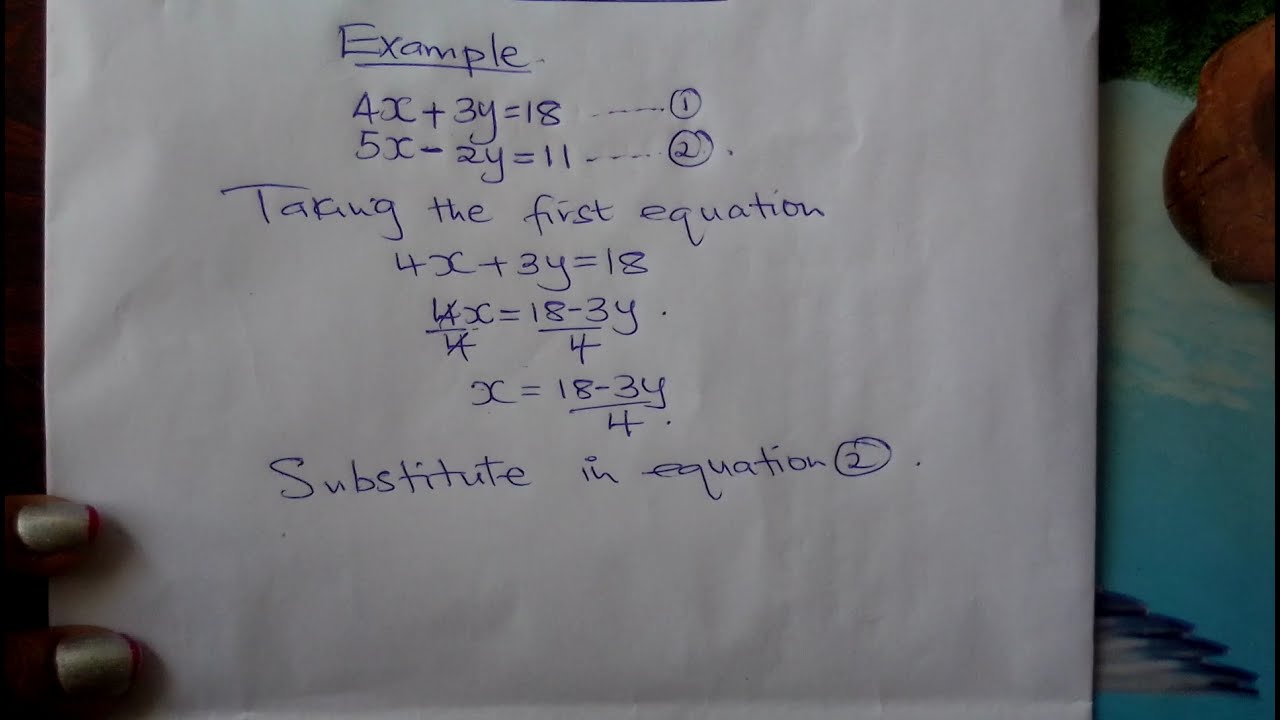 Example.
4x + 3y = 18 ------ ①
5x - 2y = 11 ------ ② .
Taking the first equation
4x + 3y = 18
4x/4 = 18 - 3y/4 .
x = 18 - 3y/4 .
Substitute in equation ② .